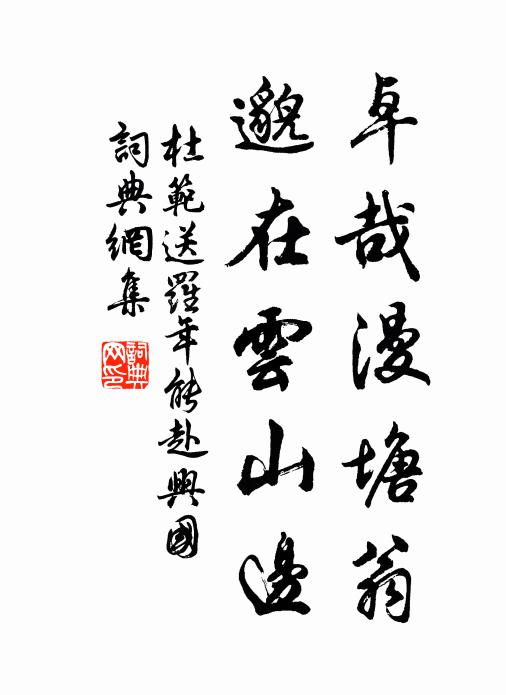 卓哉漫塘翁
邈在雲山邊
杜範送羅年能赴興國
詞典網集
詞典網印